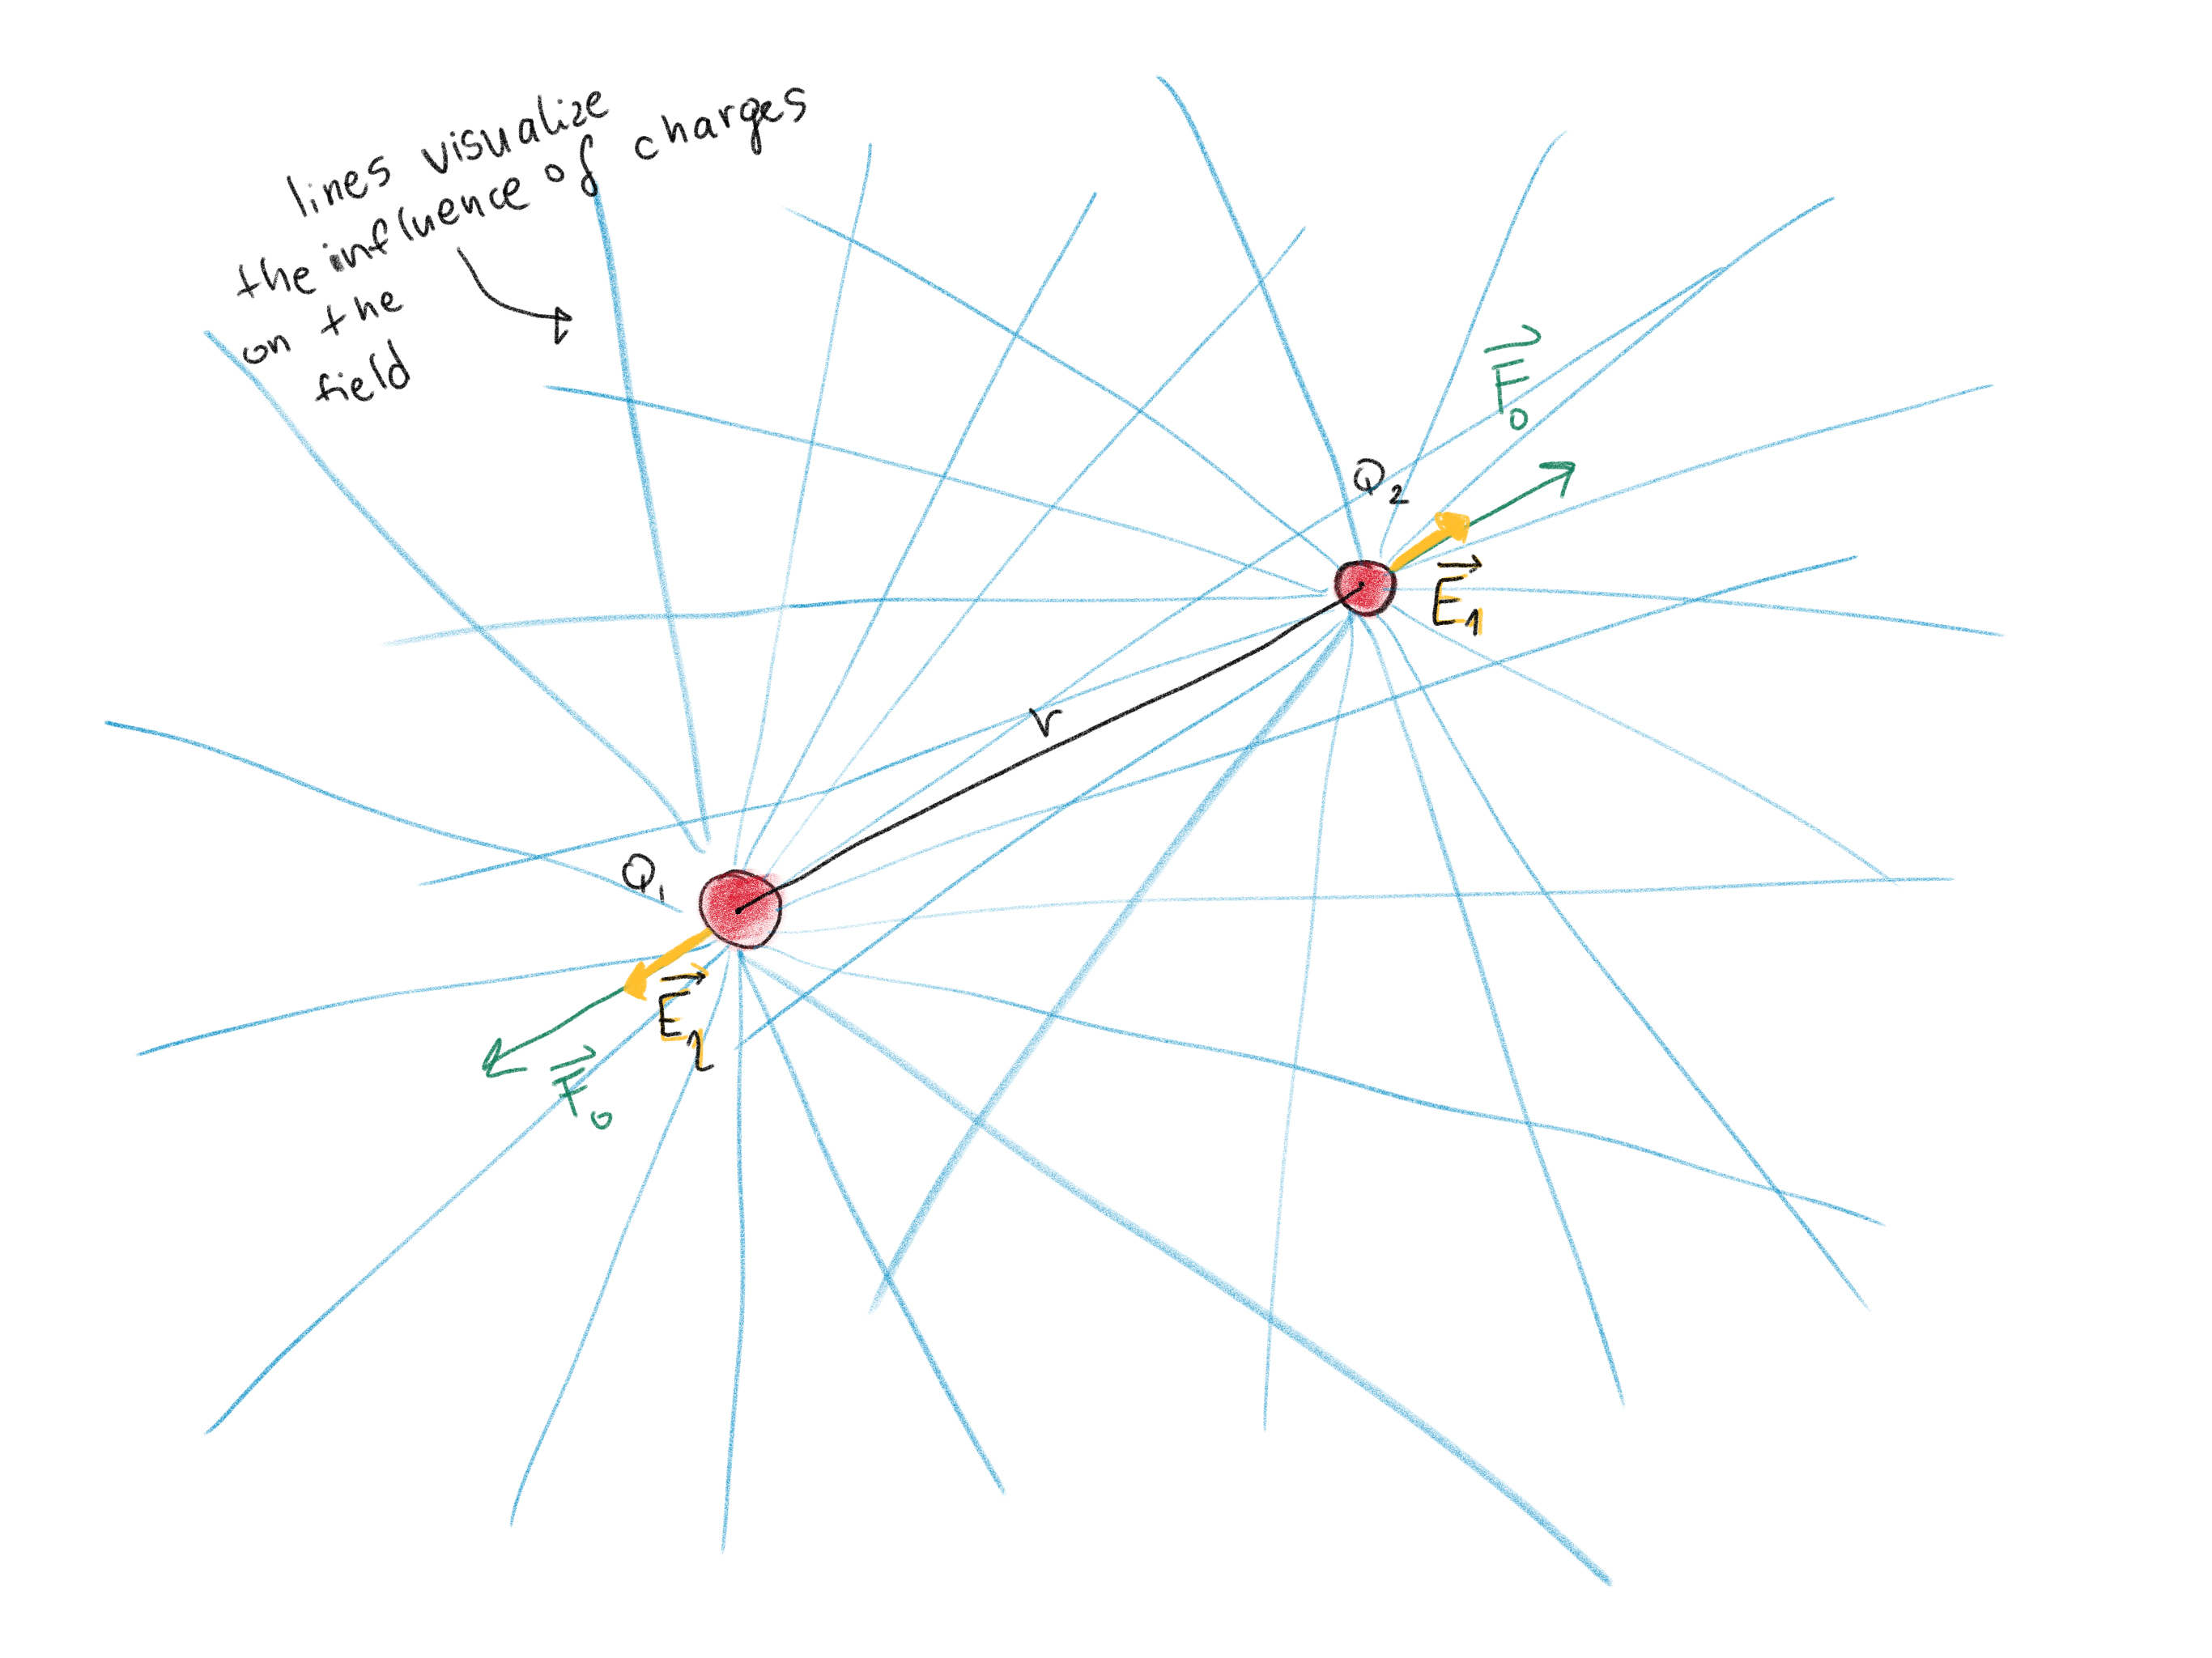 lines visualize
the influence of charges
on the
field
F₀
Q₂
E₁
r
Q₁
E₂
F₀